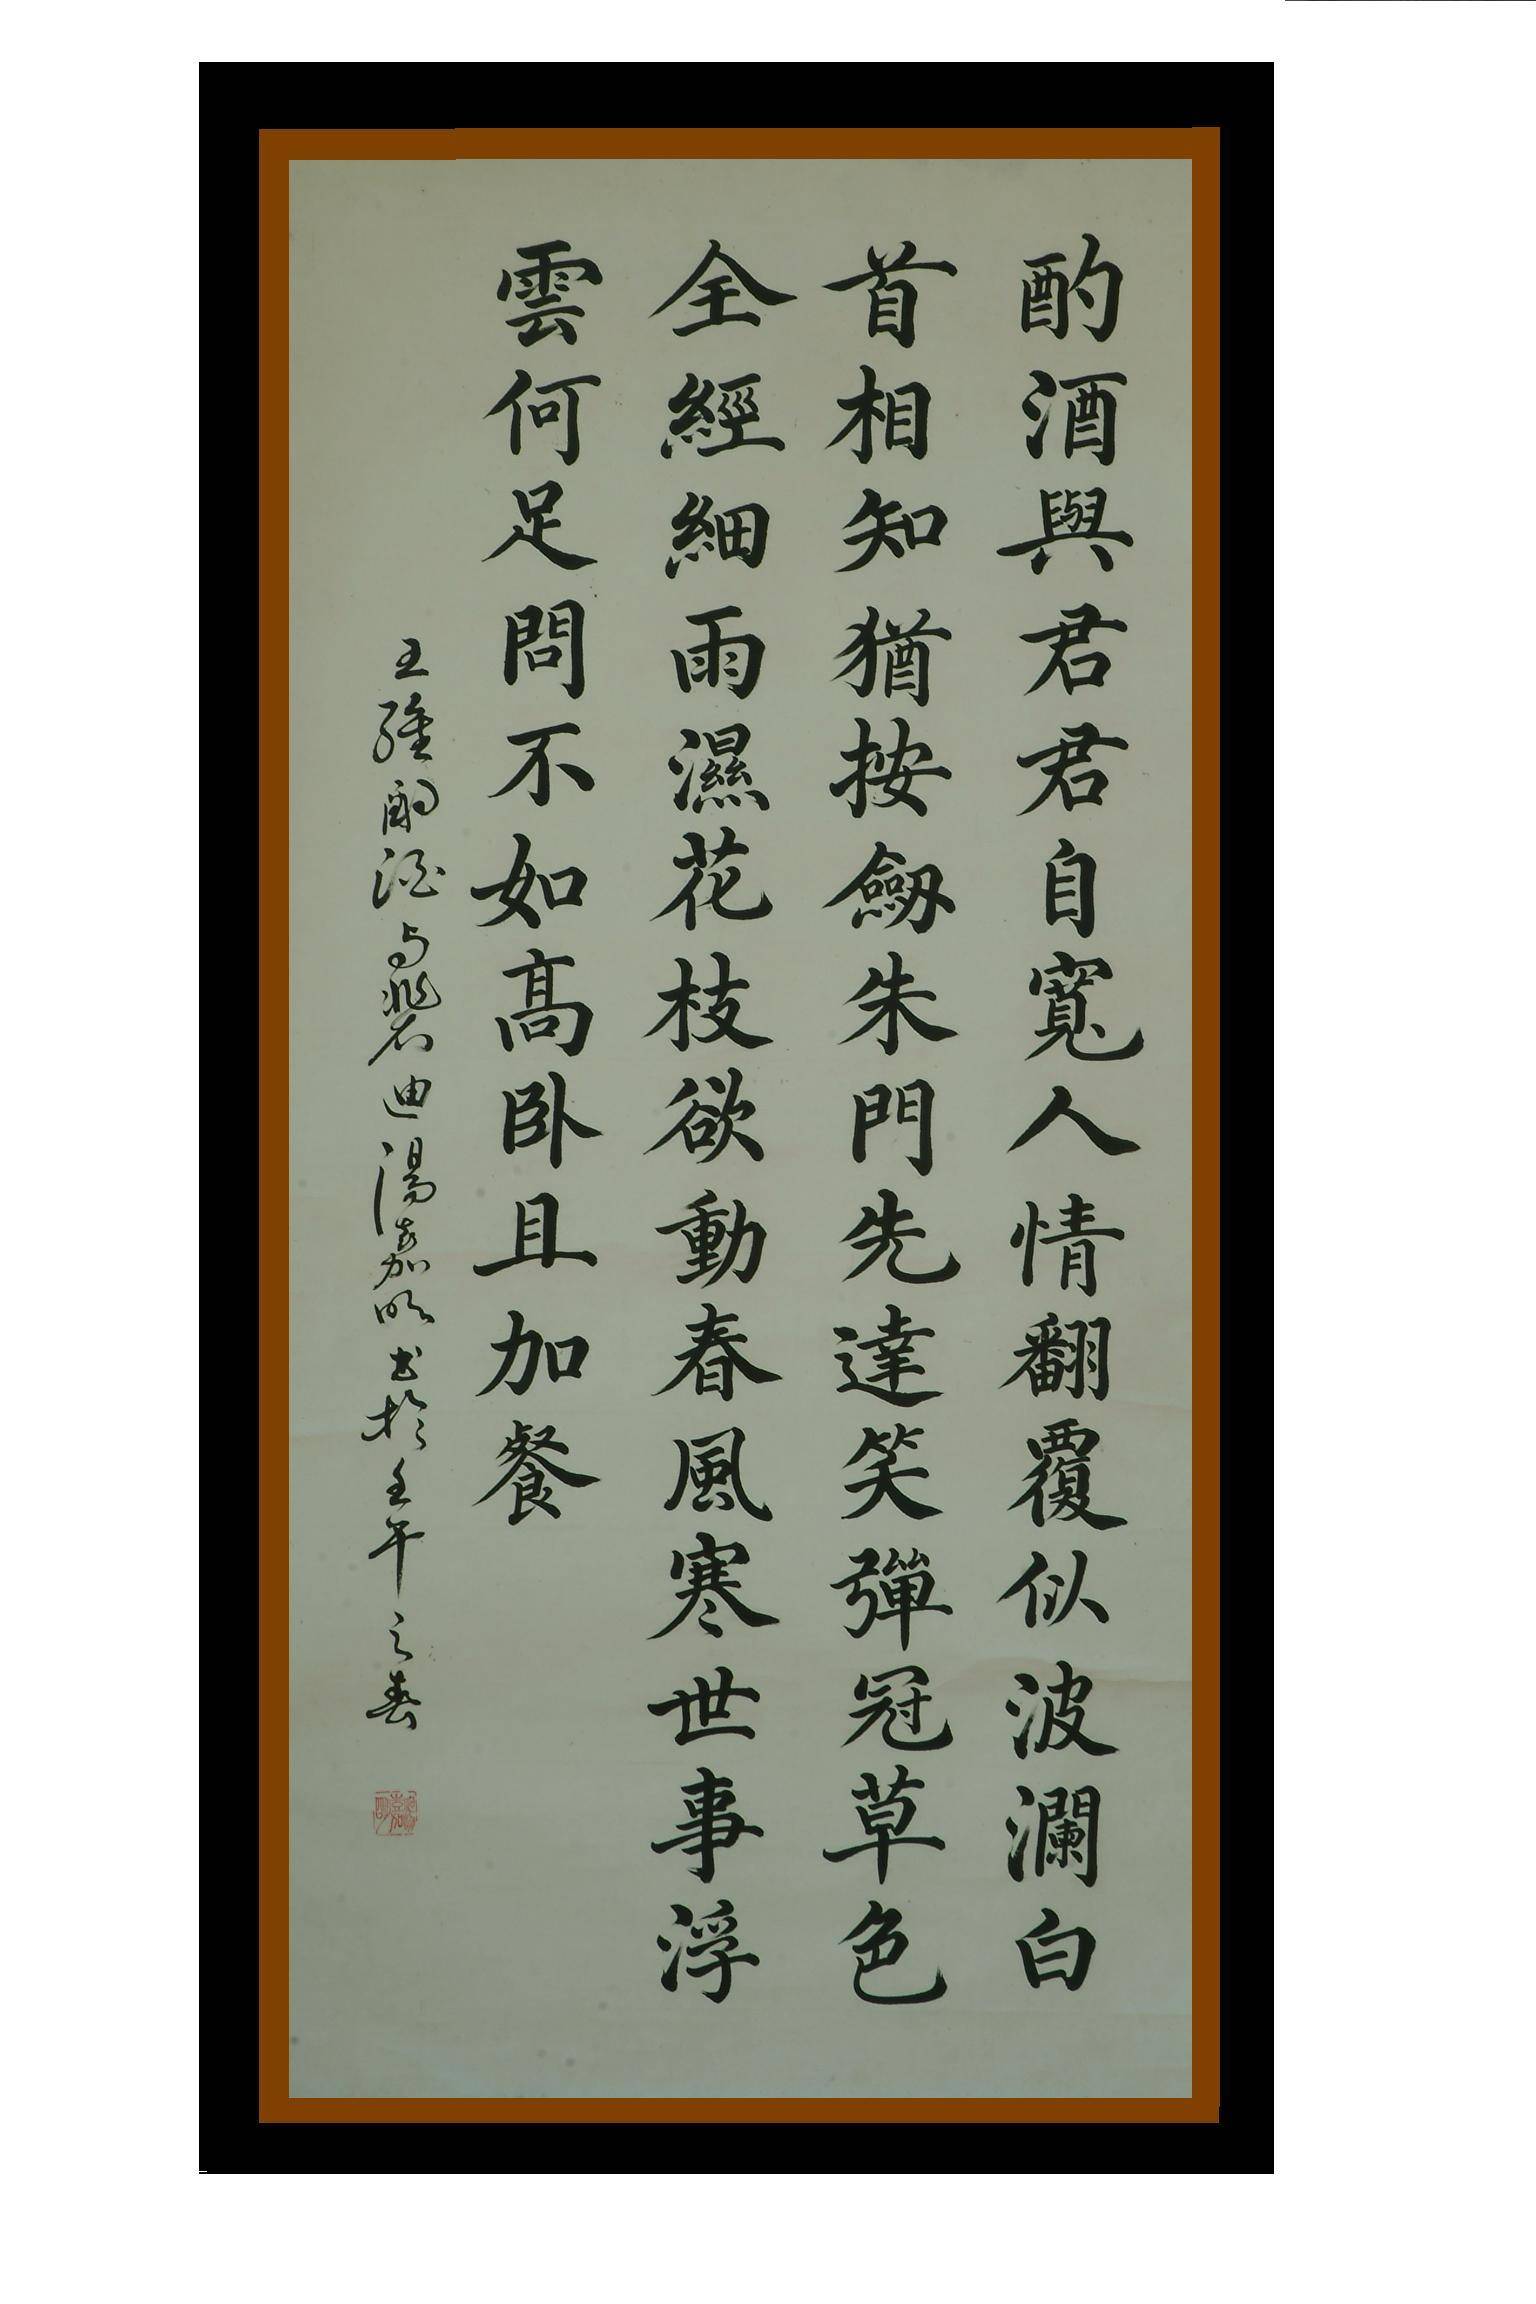 酌酒與君君自寬人情翻覆似波瀾白
首相知猶按劒朱門先達笑彈冠草色
全經細雨濕花枝欲動春風寒世事浮
雲何足問不如高卧且加餐
王維酌酒与裴迪湯嘉明书於壬午之春